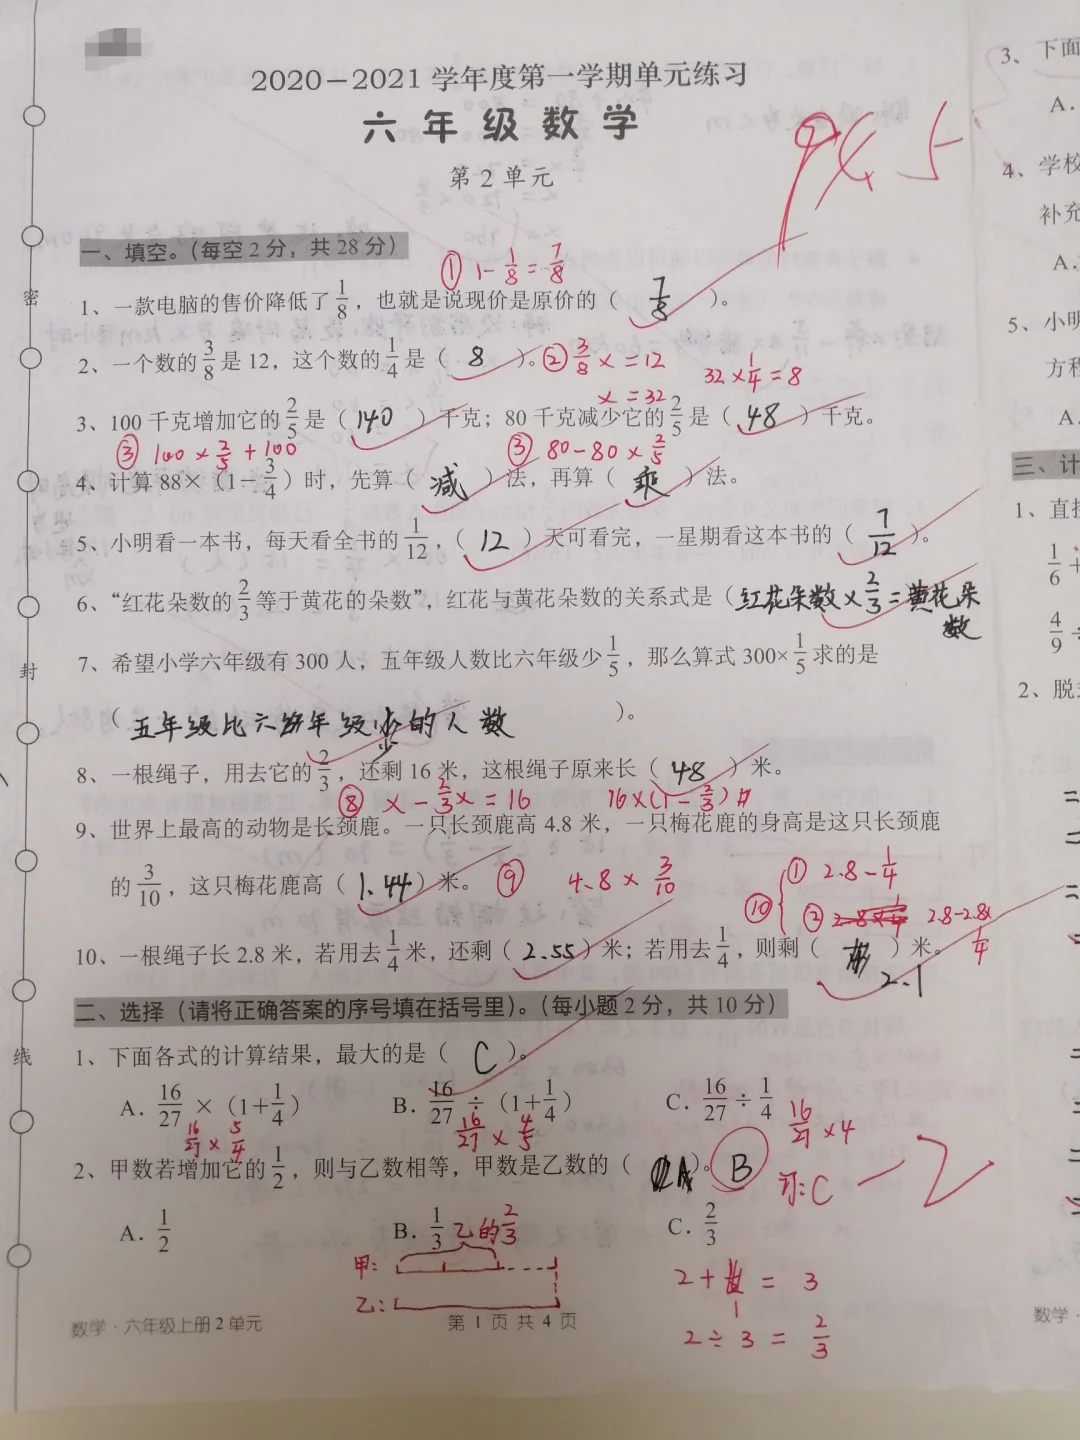 2020－2021 学年度第一学期单元练习
六年级数学
94.5
第 2 单元
一、填空。（每空 2 分，共 28 分）
① 1-1/8=7/8
1、一款电脑的售价降低了 1/8，也就是说现价是原价的（ 7/8 ）。
2、一个数的 3/8 是 12，这个数的 1/4 是（ 8 ）。② 3/8 x = 12 32×1/4=8
x = 32
3、100 千克增加它的 2/5 是（ 140 ）千克；80 千克减少它的 2/5 是（ 48 ）千克。
③ 100×2/5+100 ③ 80-80×2/5
4、计算 88×（1-3/4）时，先算（ 减 ）法，再算（ 乘 ）法。
5、小明看一本书，每天看全书的 1/12，（ 12 ）天可看完，一星期看这本书的（ 7/12 ）。
6、“红花朵数的 2/3 等于黄花的朵数”，红花与黄花朵数的关系式是（ 红花朵数×2/3=黄花朵
数
7、希望小学六年级有 300 人，五年级人数比六年级少 1/5，那么算式 300×1/5 求的是
（ 五年级比六年级少的人数 ）。
8、一根绳子，用去它的 2/3，还剩 16 米，这根绳子原来长（ 48 ）米。
⑧ x - 2/3x = 16 16×(1-2/3)
9、世界上最高的动物是长颈鹿。一只长颈鹿高 4.8 米，一只梅花鹿的身高是这只长颈鹿
的 3/10，这只梅花鹿高（ 1.44 ）米。⑨ 4.8×3/10
⑩ ① 2.8-1/4
② 2.8-2.8×1/4
10、一根绳子长 2.8 米，若用去 1/4 米，还剩（ 2.55 ）米；若用去 1/4，则剩（ 2.1 ）米。
二、选择（请将正确答案的序号填在括号里）。（每小题 2 分，共 10 分）
1、下面各式的计算结果，最大的是（ C ）。
A. 16/27 ×（1+1/4） B. 16/27 ÷（1+1/4） C. 16/27 ÷ 1/4
16/27×5/4 16/27×4/5 16/27×4
2、甲数若增加它的 1/2，则与乙数相等，甲数是乙数的（ A ）。B 订:C -2
A. 1/2 B. 1/3 C. 2/3
乙的2/3
甲:
乙:
2+1=3
2÷3=2/3
数学·六年级上册 2 单元
第 1 页 共 4 页
密
封
线
3、下面
A.
4、学校
补充
A.
5、小明
方程
A.
三、计
1、直接
1/6 +
4/9 ÷
2、脱
数学·